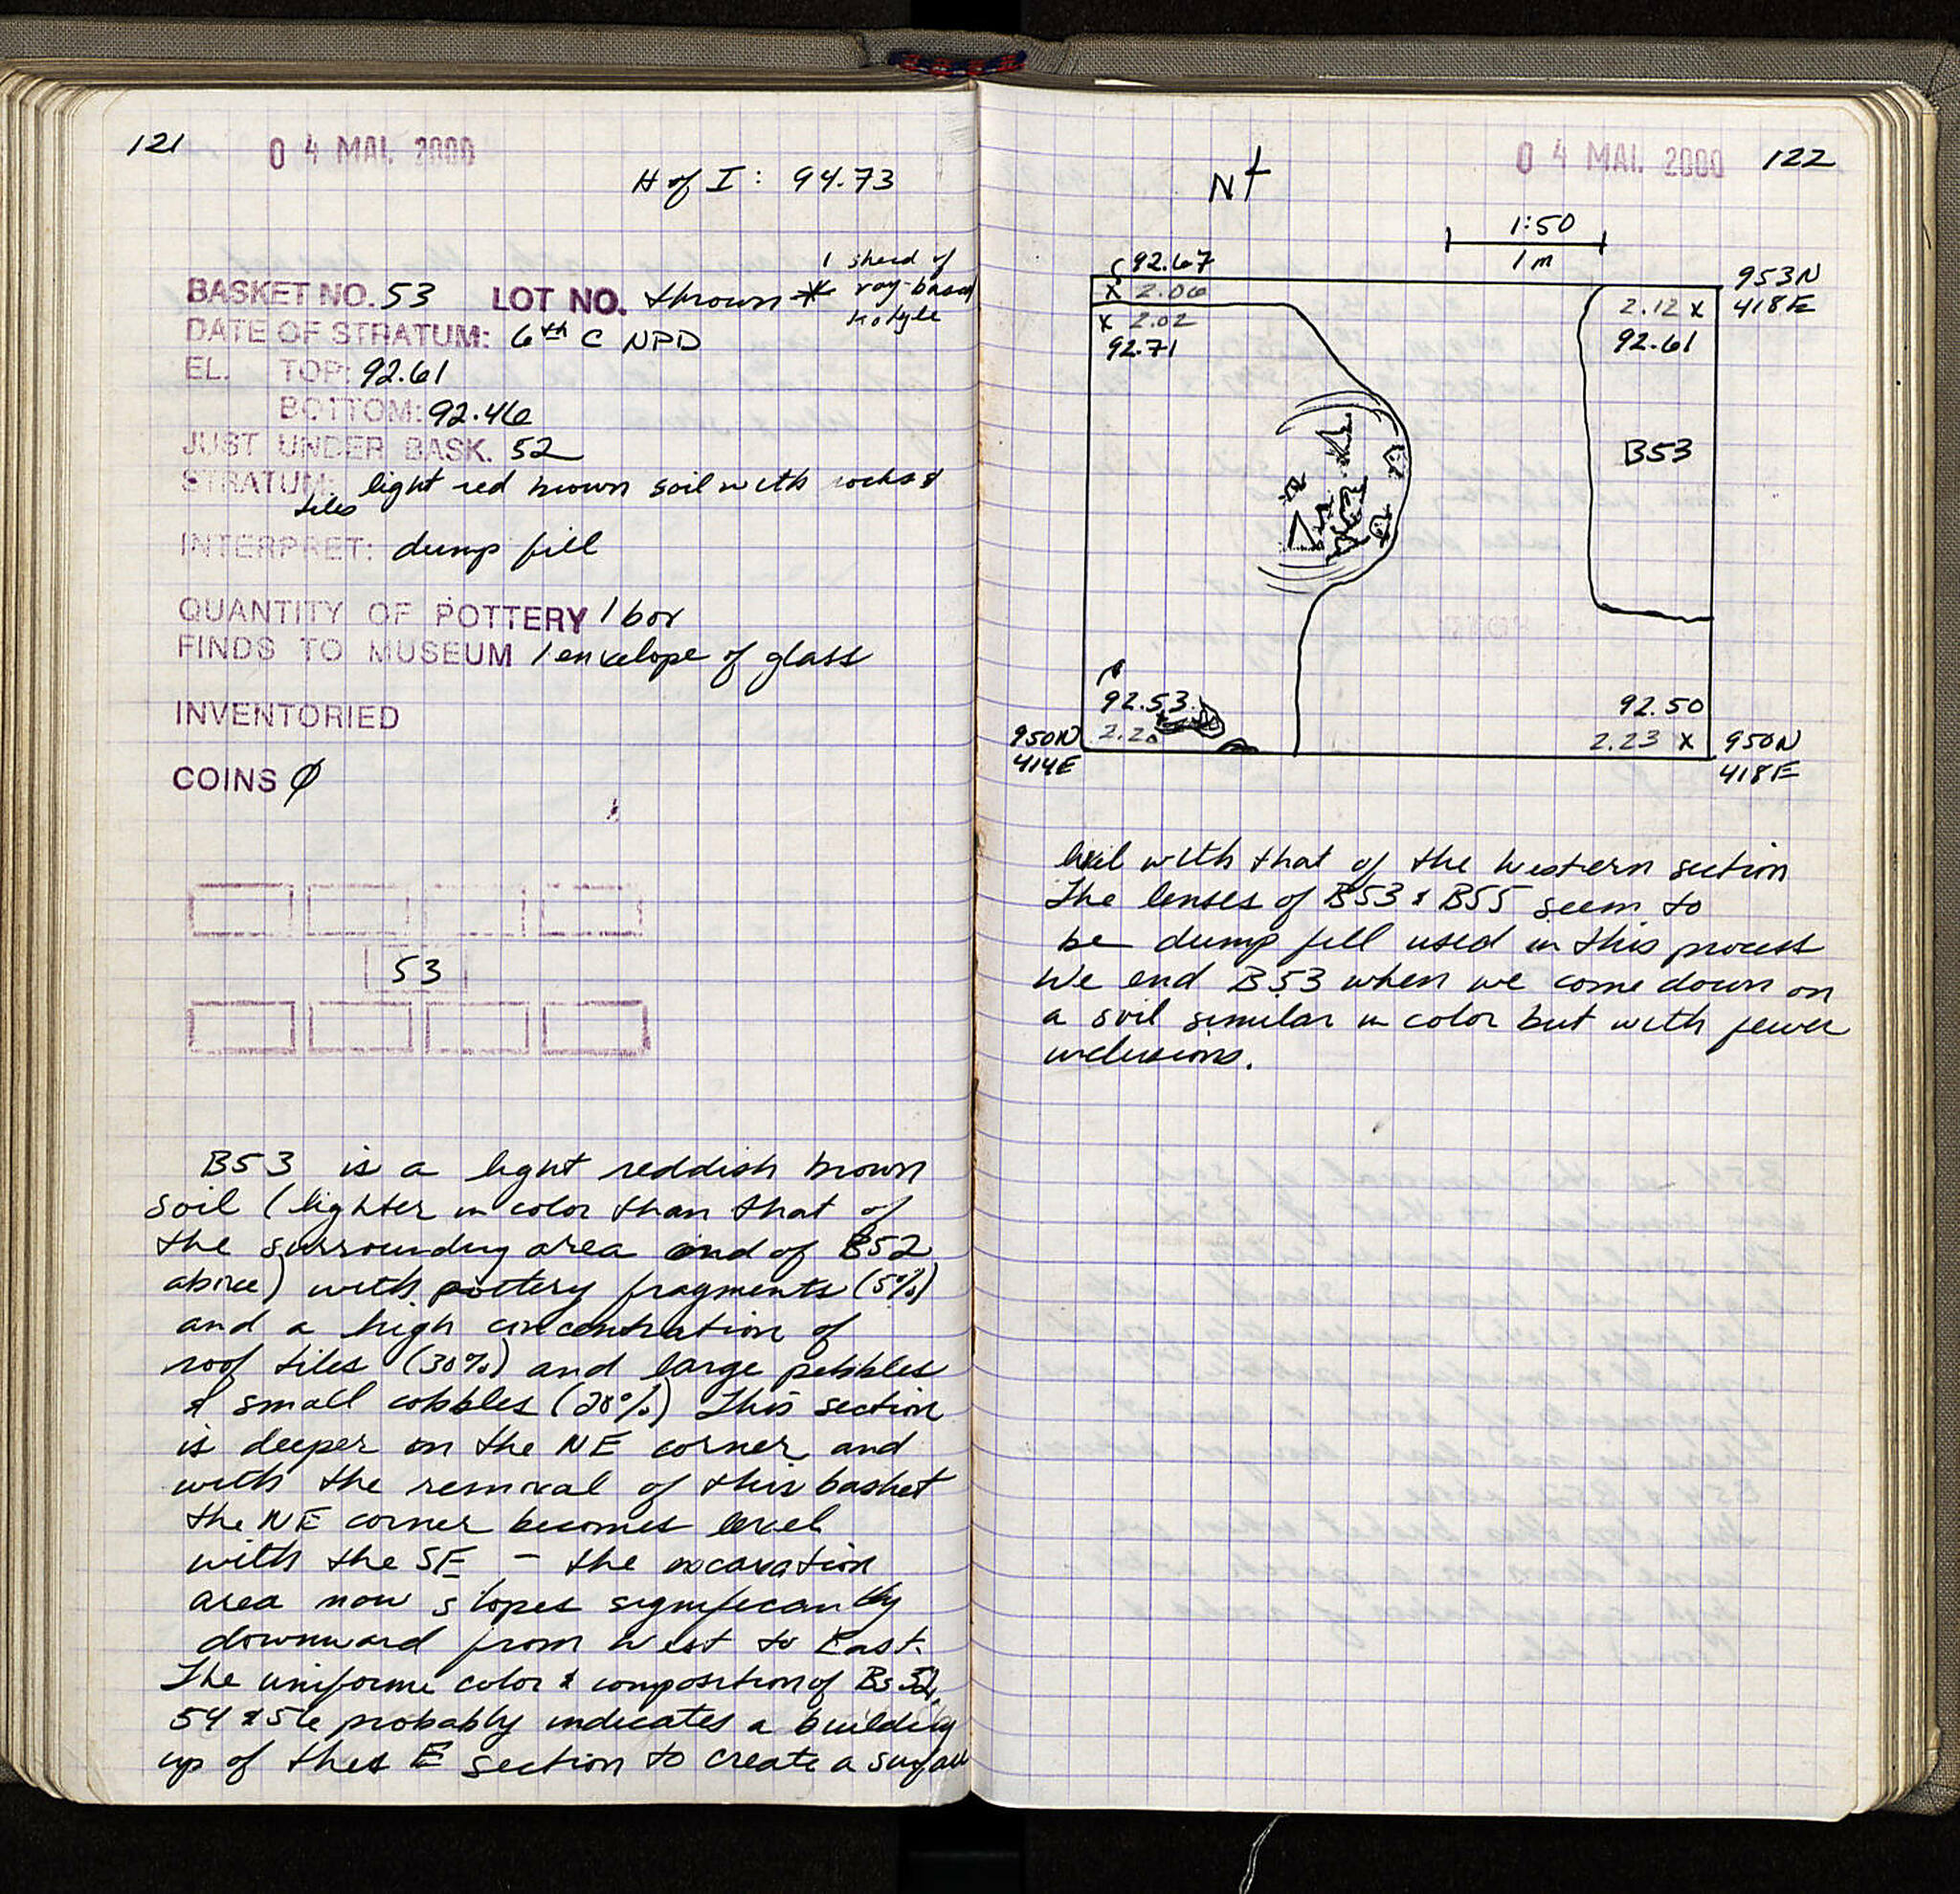 121
0 4 MAI. 2000
H of I: 94.73
1 sherd of
ray-based
kotyle
BASKET NO. 53 LOT NO. thrown *
DATE OF STRATUM: 6th C NPD
EL. TOP: 92.61
BOTTOM: 92.46
JUST UNDER BASK. 52
STRATUM: light red brown soil with rocks &
tiles
INTERPRET: dump fill
QUANTITY OF POTTERY 1 box
FINDS TO MUSEUM 1 envelope of glass
INVENTORIED
COINS Ø
53
B53 is a light reddish brown
soil (lighter in color than that of
the surrounding area and of B52
above) with pottery fragments (5%)
and a high concentration of
roof tiles (30%) and large pebbles
& small cobbles (20%) This section
is deeper on the NE corner and
with the removal of this basket
the NE corner becomes level
with the SE - the excavation
area now slopes significantly
downward from West to East.
The uniforme color & composition of Bs 52,
54 & 56 probably indicates a building
up of thes E section to create a surface
0 4 MAI. 2000 122
N
1:50
1 m
92.67
953N
418E
x 2.06
x 2.02
92.71
2.12 x
92.61
B53
92.53
2.20
92.50
2.23 x
950N
414E
950N
418E
level with that of the Western section
The lenses of B53 & B55 seem to
be dump fill used in this process
We end B53 when we come down on
a soil similar in color but with fewer
inclusions.